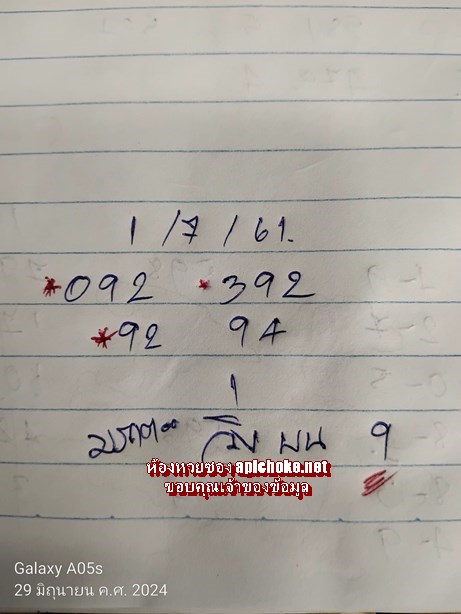 1/7/61.
*092 *392
*92 94
1
วิ่ง บน 9
ห้องหวยซอง apichoke.net
ขอบคุณเจ้าของข้อมูล
Galaxy A05s
29 มิถุนายน ค.ศ. 2024